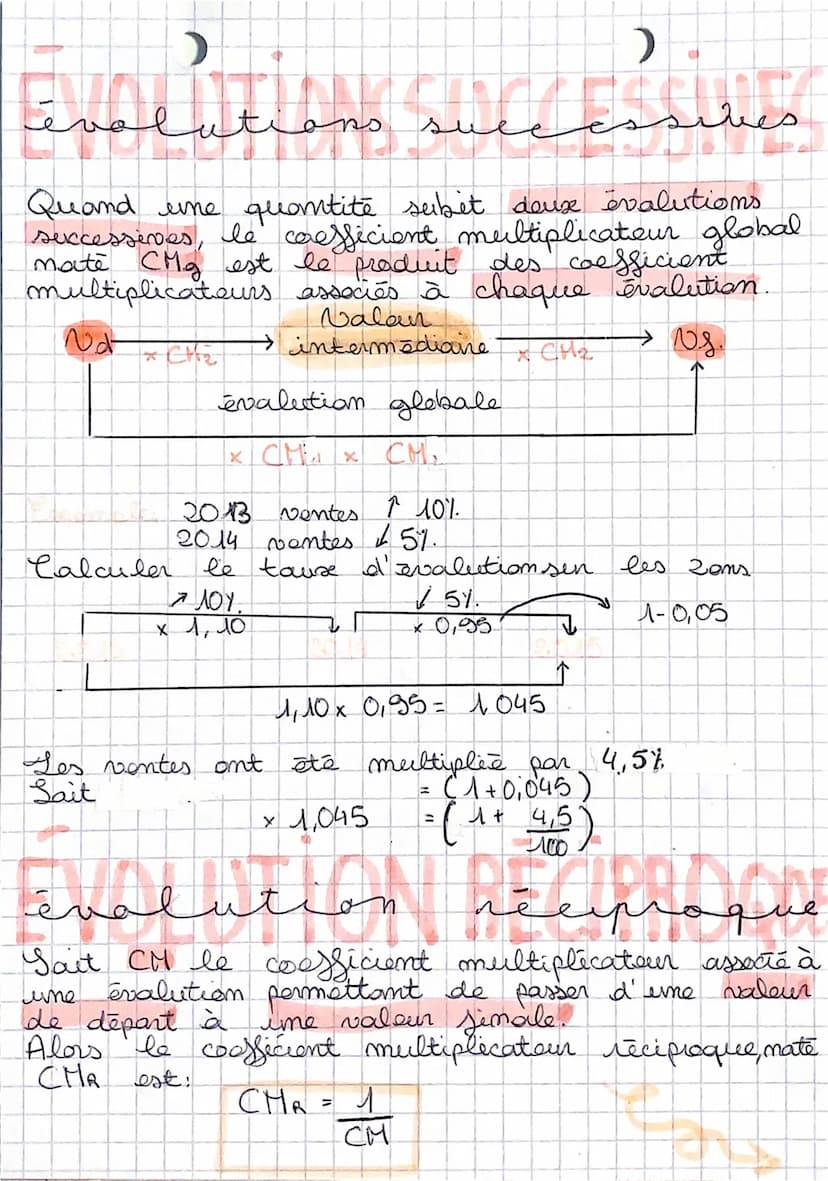 ÉVOLUTIONS SUCCESSIVES
évolutions successives
Quand une quantité subit deux évolutions
successives, le coefficient multiplicateur global
noté CMg est le produit des coefficient
multiplicateurs associés à chaque évolution.
Vd × CM2 Valeur intermédiaire × CM2 Vf.
évolution globale
× CM1 × CM2
Exemple:
2013 ventes ↑ 10%.
2014 ventes ↓ 5%.
Calculer le taux d'évolution sur les 2 ans
↗ 10%. ↓ 5%.
× 1,10 × 0,95 1-0,05
2013 2014 2015
1,10 × 0,95 = 1 045
Les ventes ont été multiplié par 4,5%
Soit = (1+0,045)
× 1,045 = (1 + 4,5/100)
ÉVOLUTION RÉCIPROQUE
évolution réciproque
Soit CM le coefficient multiplicateur associé à
une évolution permettant de passer d'une valeur
de départ à une valeur finale.
Alors le coefficient multiplicateur réciproque, noté
CMR est:
CMR = 1/CM